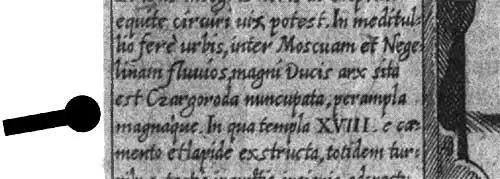 equite circuiri uix potest. In meditul-
lio ferè urbis, inter Moscuam et Nege-
linam fluuios, magni Ducis arx sita
est Czargoroda nuncupata, perampla
magnaque. In qua templa XVIII. e cæ-
mento et lapide exstructa, totidem tur-